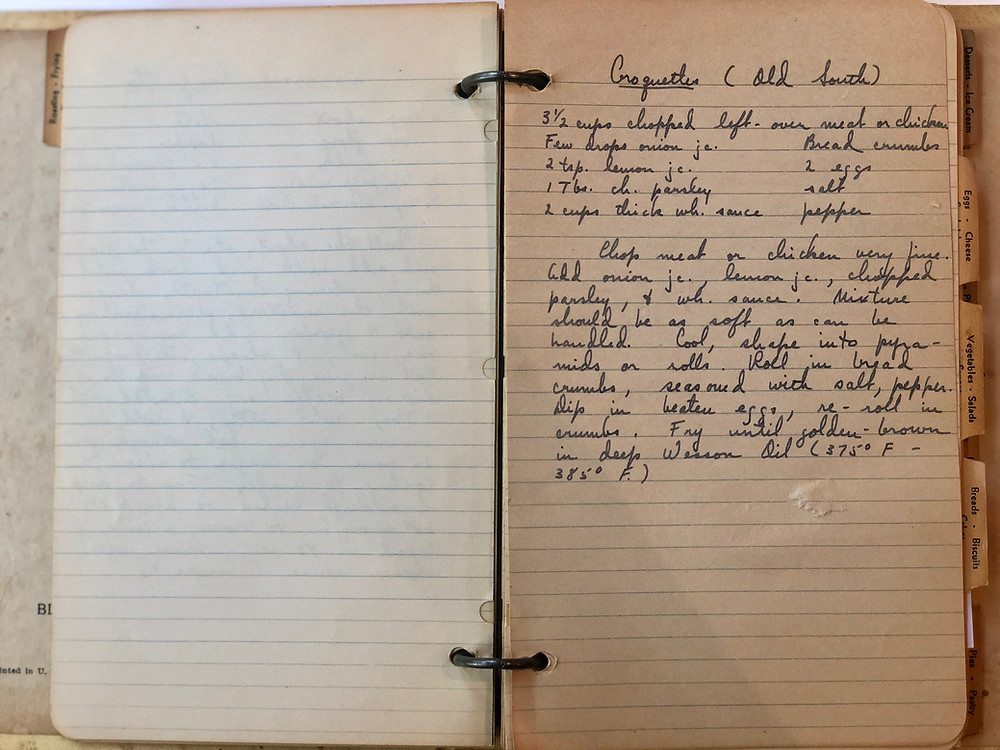 Roasting - Frying
BL
inted in U.
Croquettes ( Old South)
3 1/2 cups chopped left-over meat or chicken
Few drops onion jc. Bread crumbs
2 tsp. lemon jc. 2 eggs
1 Tbs. ch. parsley salt
2 cups thick wh. sauce pepper
Chop meat or chicken very fine.
Add onion jc., lemon jc., chopped
parsley, & wh. sauce. Mixture
should be as soft as can be
handled. Cool, shape into pyra-
mids or rolls. Roll in bread
crumbs, seasoned with salt, pepper.
Dip in beaten eggs, re-roll in
crumbs. Fry until golden-brown
in deep Wesson Oil (375° F -
385° F.)
Desserts - Ice Cream
Eggs - Cheese
Vegetables - Salads
Breads - Biscuits
Pies - Pastry